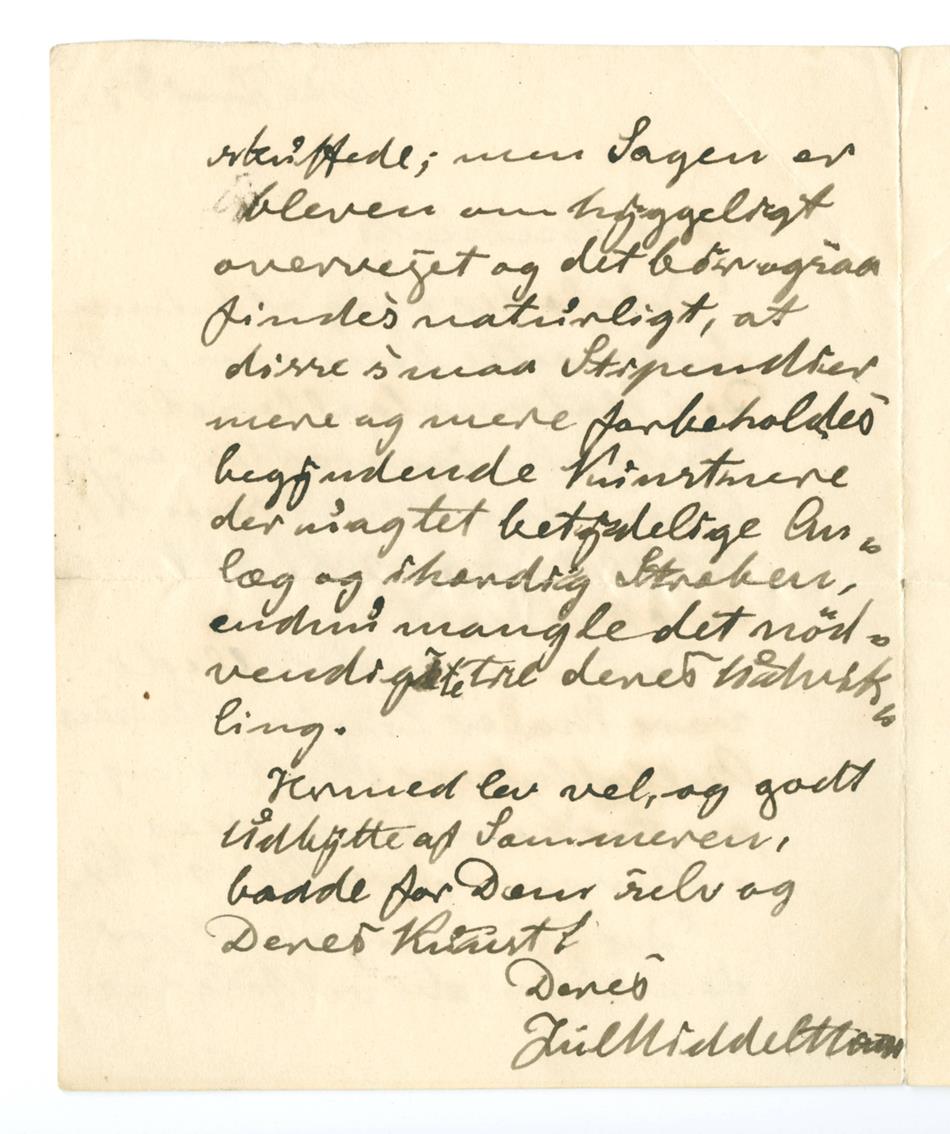 skuffede; men Sagen er
bleven omhyggeligt
overvejet og det bör ogsaa
findes naturligt, at
disse smaa Stipendier
mere og mere forbeholdes
begyndende Kunstnere
der uagtet betydelige An-
læg og ihærdig Stræben,
endnu mangle det nöd-
vendigste til deres Udvik-
ling.
Hermed lev vel, og godt
Udbytte af Sommeren,
baade for Dem selv og
Deres Kunst!
Deres
Jul Middelthun